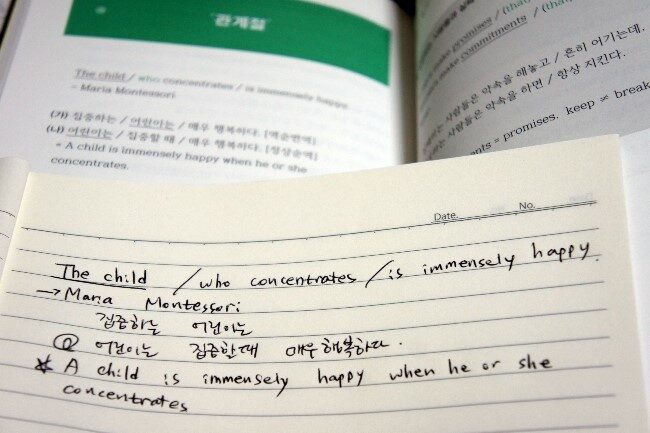 '관계절'
The child / who concentrates / is immensely happy
– Maria Montessori
(가) 집중하는 / 어린이는 / 매우 행복하다. [역순번역]
(나) 어린이는 / 집중할 때 / 매우 행복하다. [정상순역]
= A child is immensely happy when he or she
concentrates.
make promises / (that
make commitments / (that
사람들은 약속을 해놓고 / 흔히 어기는데.
사람들은 약속을 하면 / 항상 지킨다.
= promises. keep ≠ break
Date. No.
The child / who concentrates / is immensely happy.
→ Maria Montessori
집중하는 어린이는
어린이는 집중할때 매우행복하다.
* A child is immensely happy when he or she
concentrates